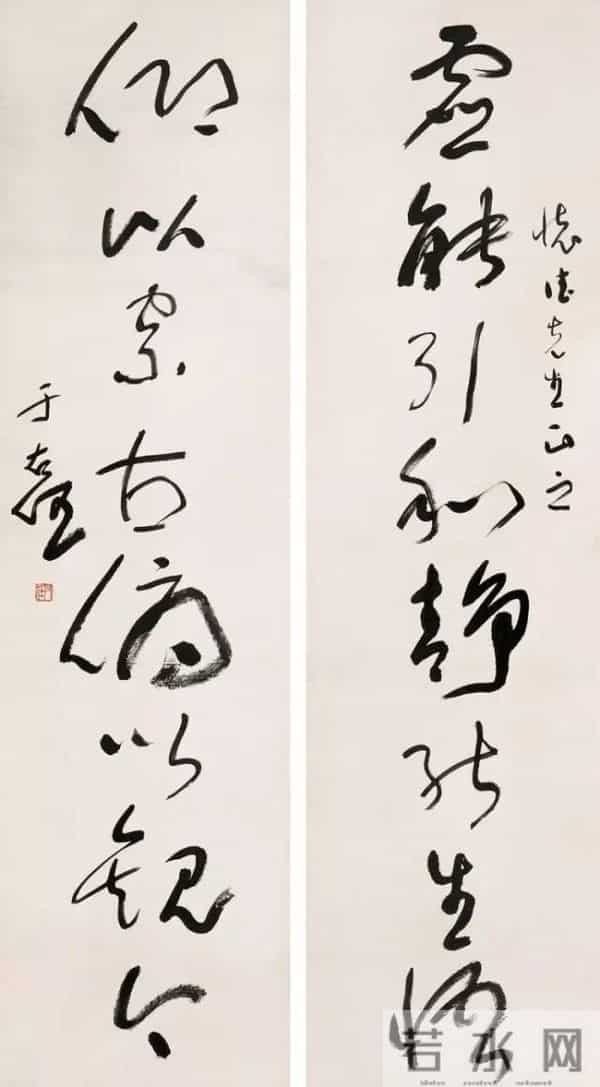 懷德先生正之
虛能引和靜能生悟
仰以察古俯以觀今
于右任
若水网